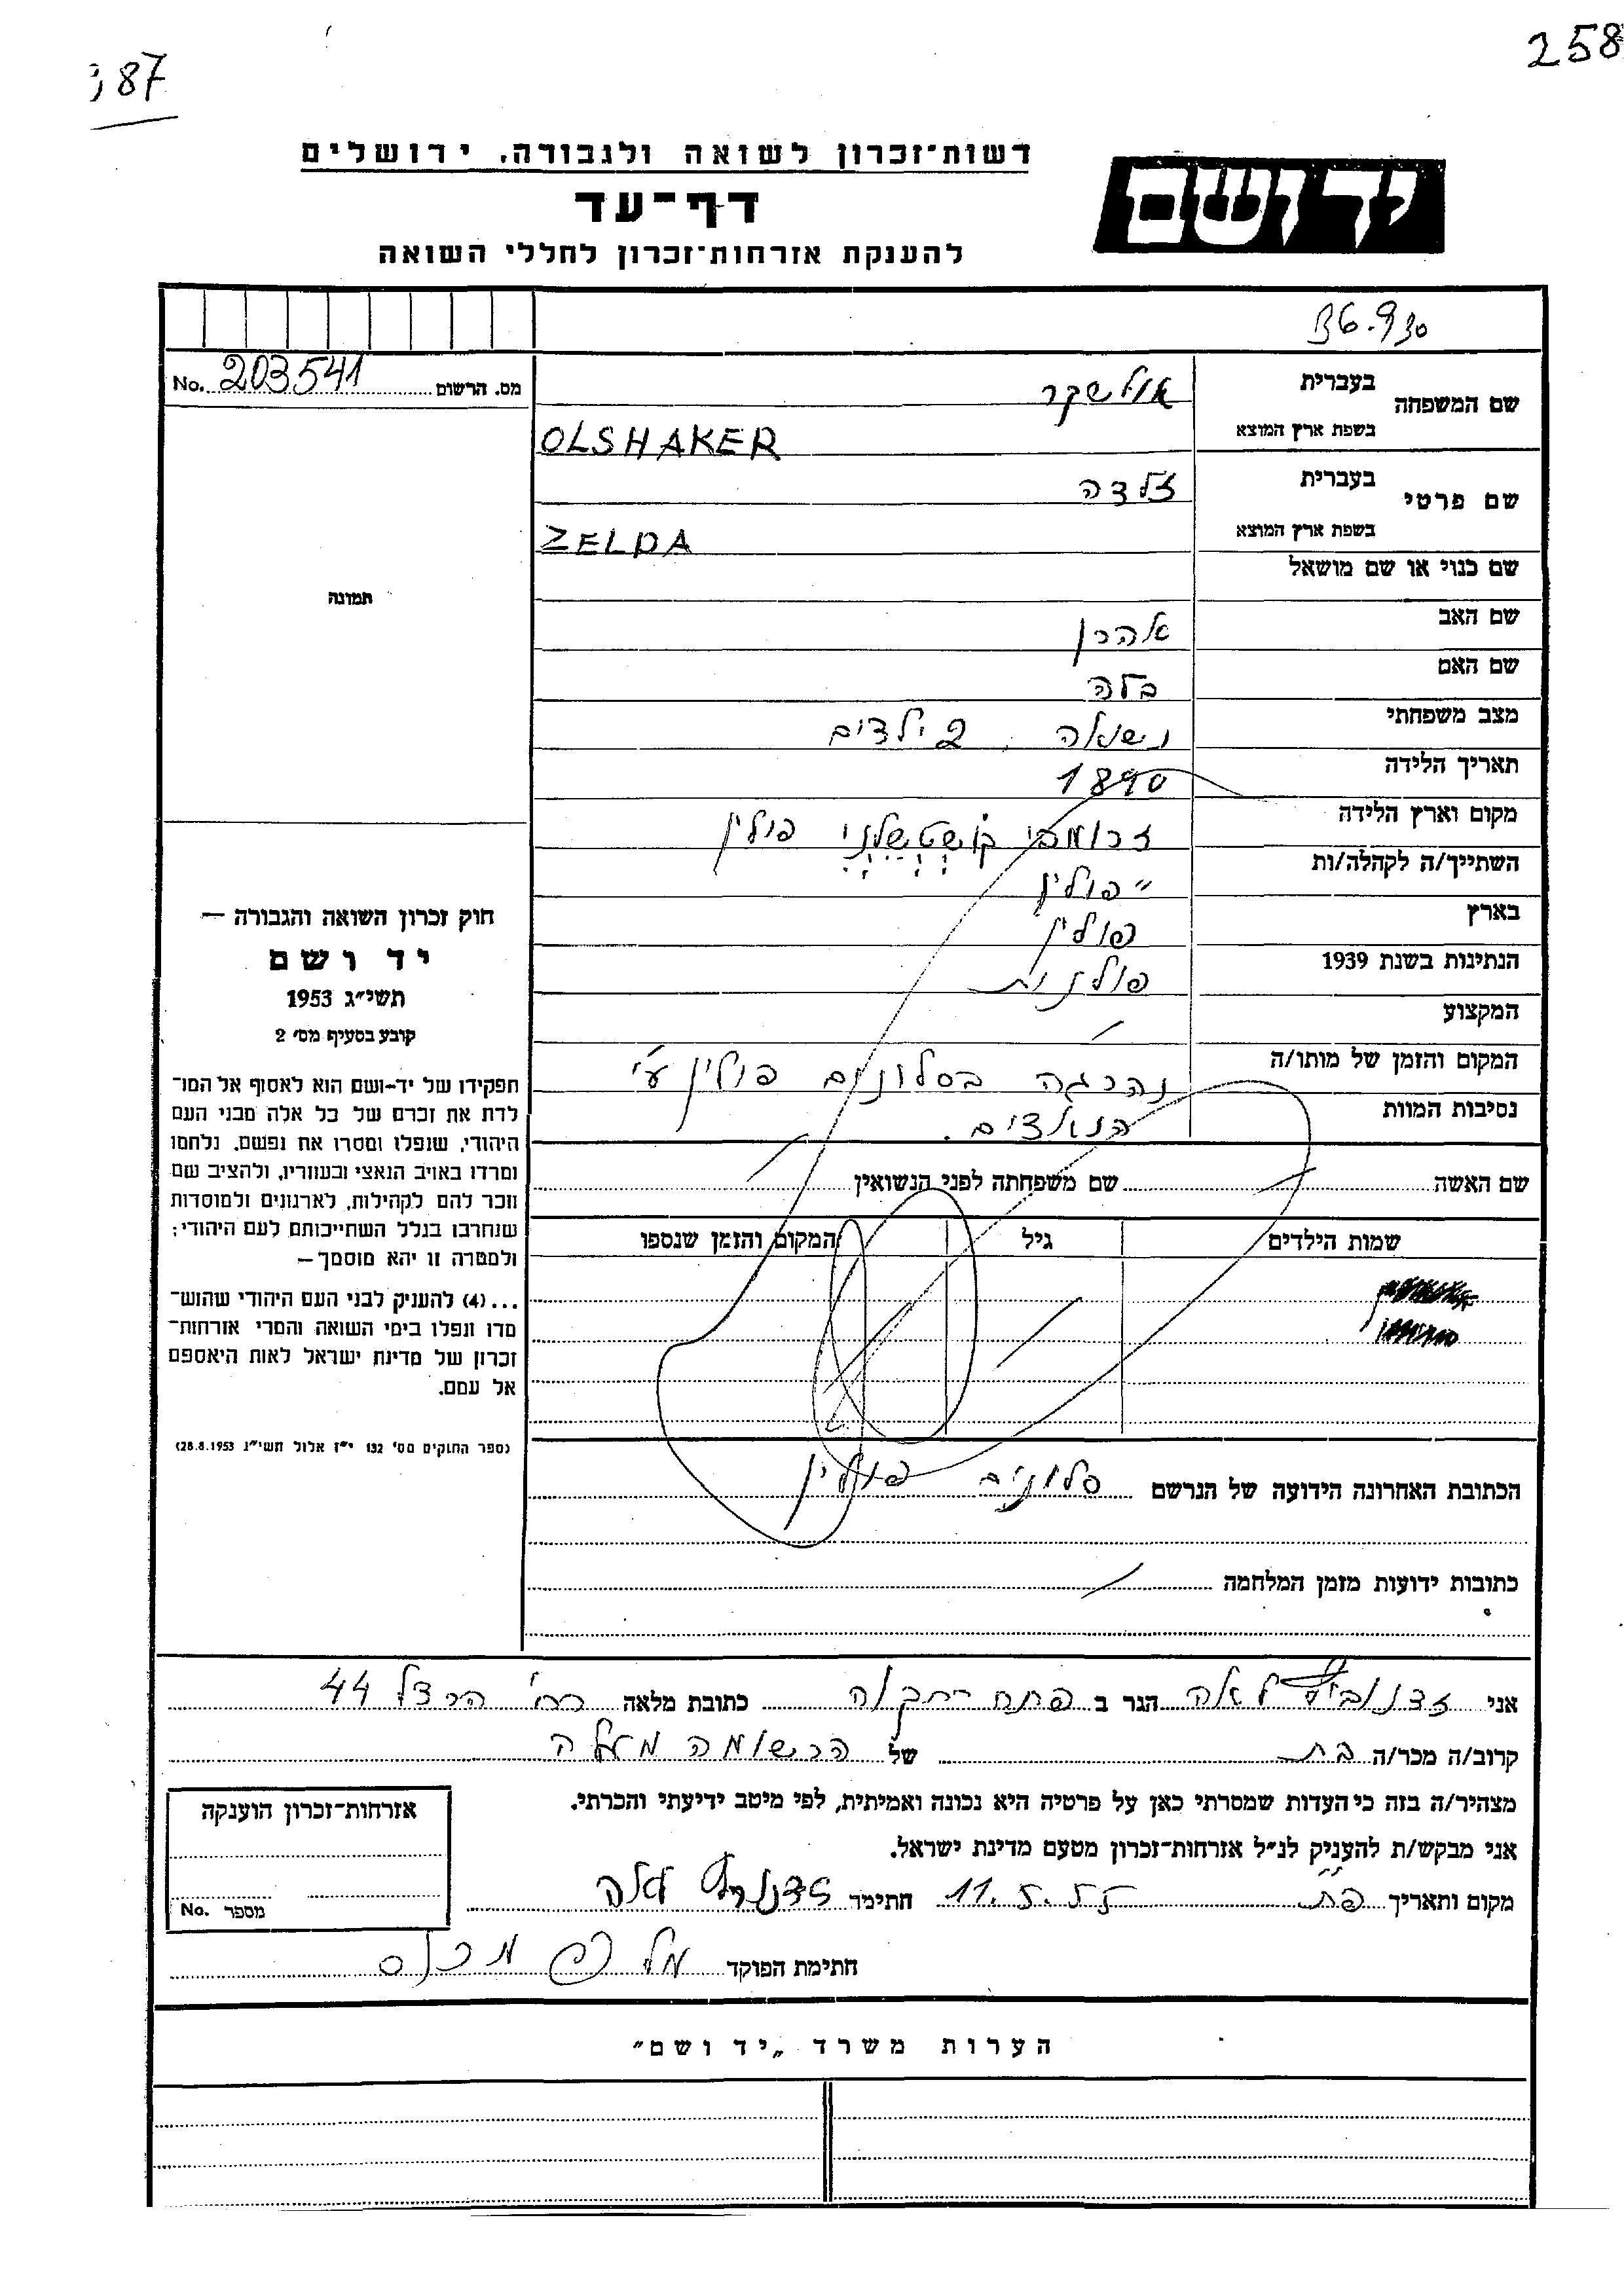 87
258
רשות־זכרון לשואה ולגבורה, ירושלים
דף־עד
להענקת אזרחות־זכרון לחללי השואה
יד ושם
מס. הרשום 203541 No.
שם המשפחה בעברית אולשקר
בשפת ארץ המוצא OLSHAKER
שם פרטי בעברית זלדה
בשפת ארץ המוצא ZELDA
שם כנוי או שם מושאל
שם האב אהרן
שם האם בלה
מצב משפחתי נשואה, 2 ילדים
תאריך הלידה 1890
מקום וארץ הלידה פולין
השתייך/ה לקהלה/ות " פולין
בארץ פולין
הנתינות בשנת 1939 פולנית
המקצוע
המקום והזמן של מותו/ה נהרגה בסלונים פולין ע"י
נסיבות המוות הנאצים.
שם האשה שם משפחתה לפני הנשואין
שמות הילדים גיל המקום והזמן שנספו
הכתובת האחרונה הידועה של הנרשם סלונים פולין
כתובות ידועות מזמן המלחמה
תמונה
חוק זכרון השואה והגבורה —
יד ושם
תשי״ג 1953
קובע בסעיף מס׳ 2
תפקידו של יד-ושם הוא לאסוף אל המו־
לדת את זכרם של כל אלה מבני העם
היהודי, שנפלו ומסרו את נפשם, נלחמו
ומרדו באויב הנאצי ובעוזריו, ולהציב שם
וזכר להם לקהילות, לארגונים ולמוסדות
שנחרבו בגלל השתייכותם לעם היהודי;
ולמטרה זו יהא מוסמך —
...(4) להעניק לבני העם היהודי שהוש־
מדו ונפלו בימי השואה והמרי אזרחות־
זכרון של מדינת ישראל לאות היאספם
אל עמם.
(ספר החוקים מס׳ 132 י״ז אלול תשי״ג 28.8.1953)
אני לאה הגר ב פתח תקוה כתובת מלאה רח' הרצל 44
קרוב/ה מכר/ה בת של הרשומה מעלה
מצהיר/ה בזה כי העדות שמסרתי כאן על פרטיה היא נכונה ואמיתית, לפי מיטב ידיעתי והכרתי.
אני מבקש/ת להעניק לנ״ל אזרחות־זכרון מטעם מדינת ישראל.
מקום ותאריך פ"ת 11.5.55 חתימה לאה
חתימת הפוקד
אזרחות־זכרון הוענקה
מספר No.
הערות משרד „יד ושם״